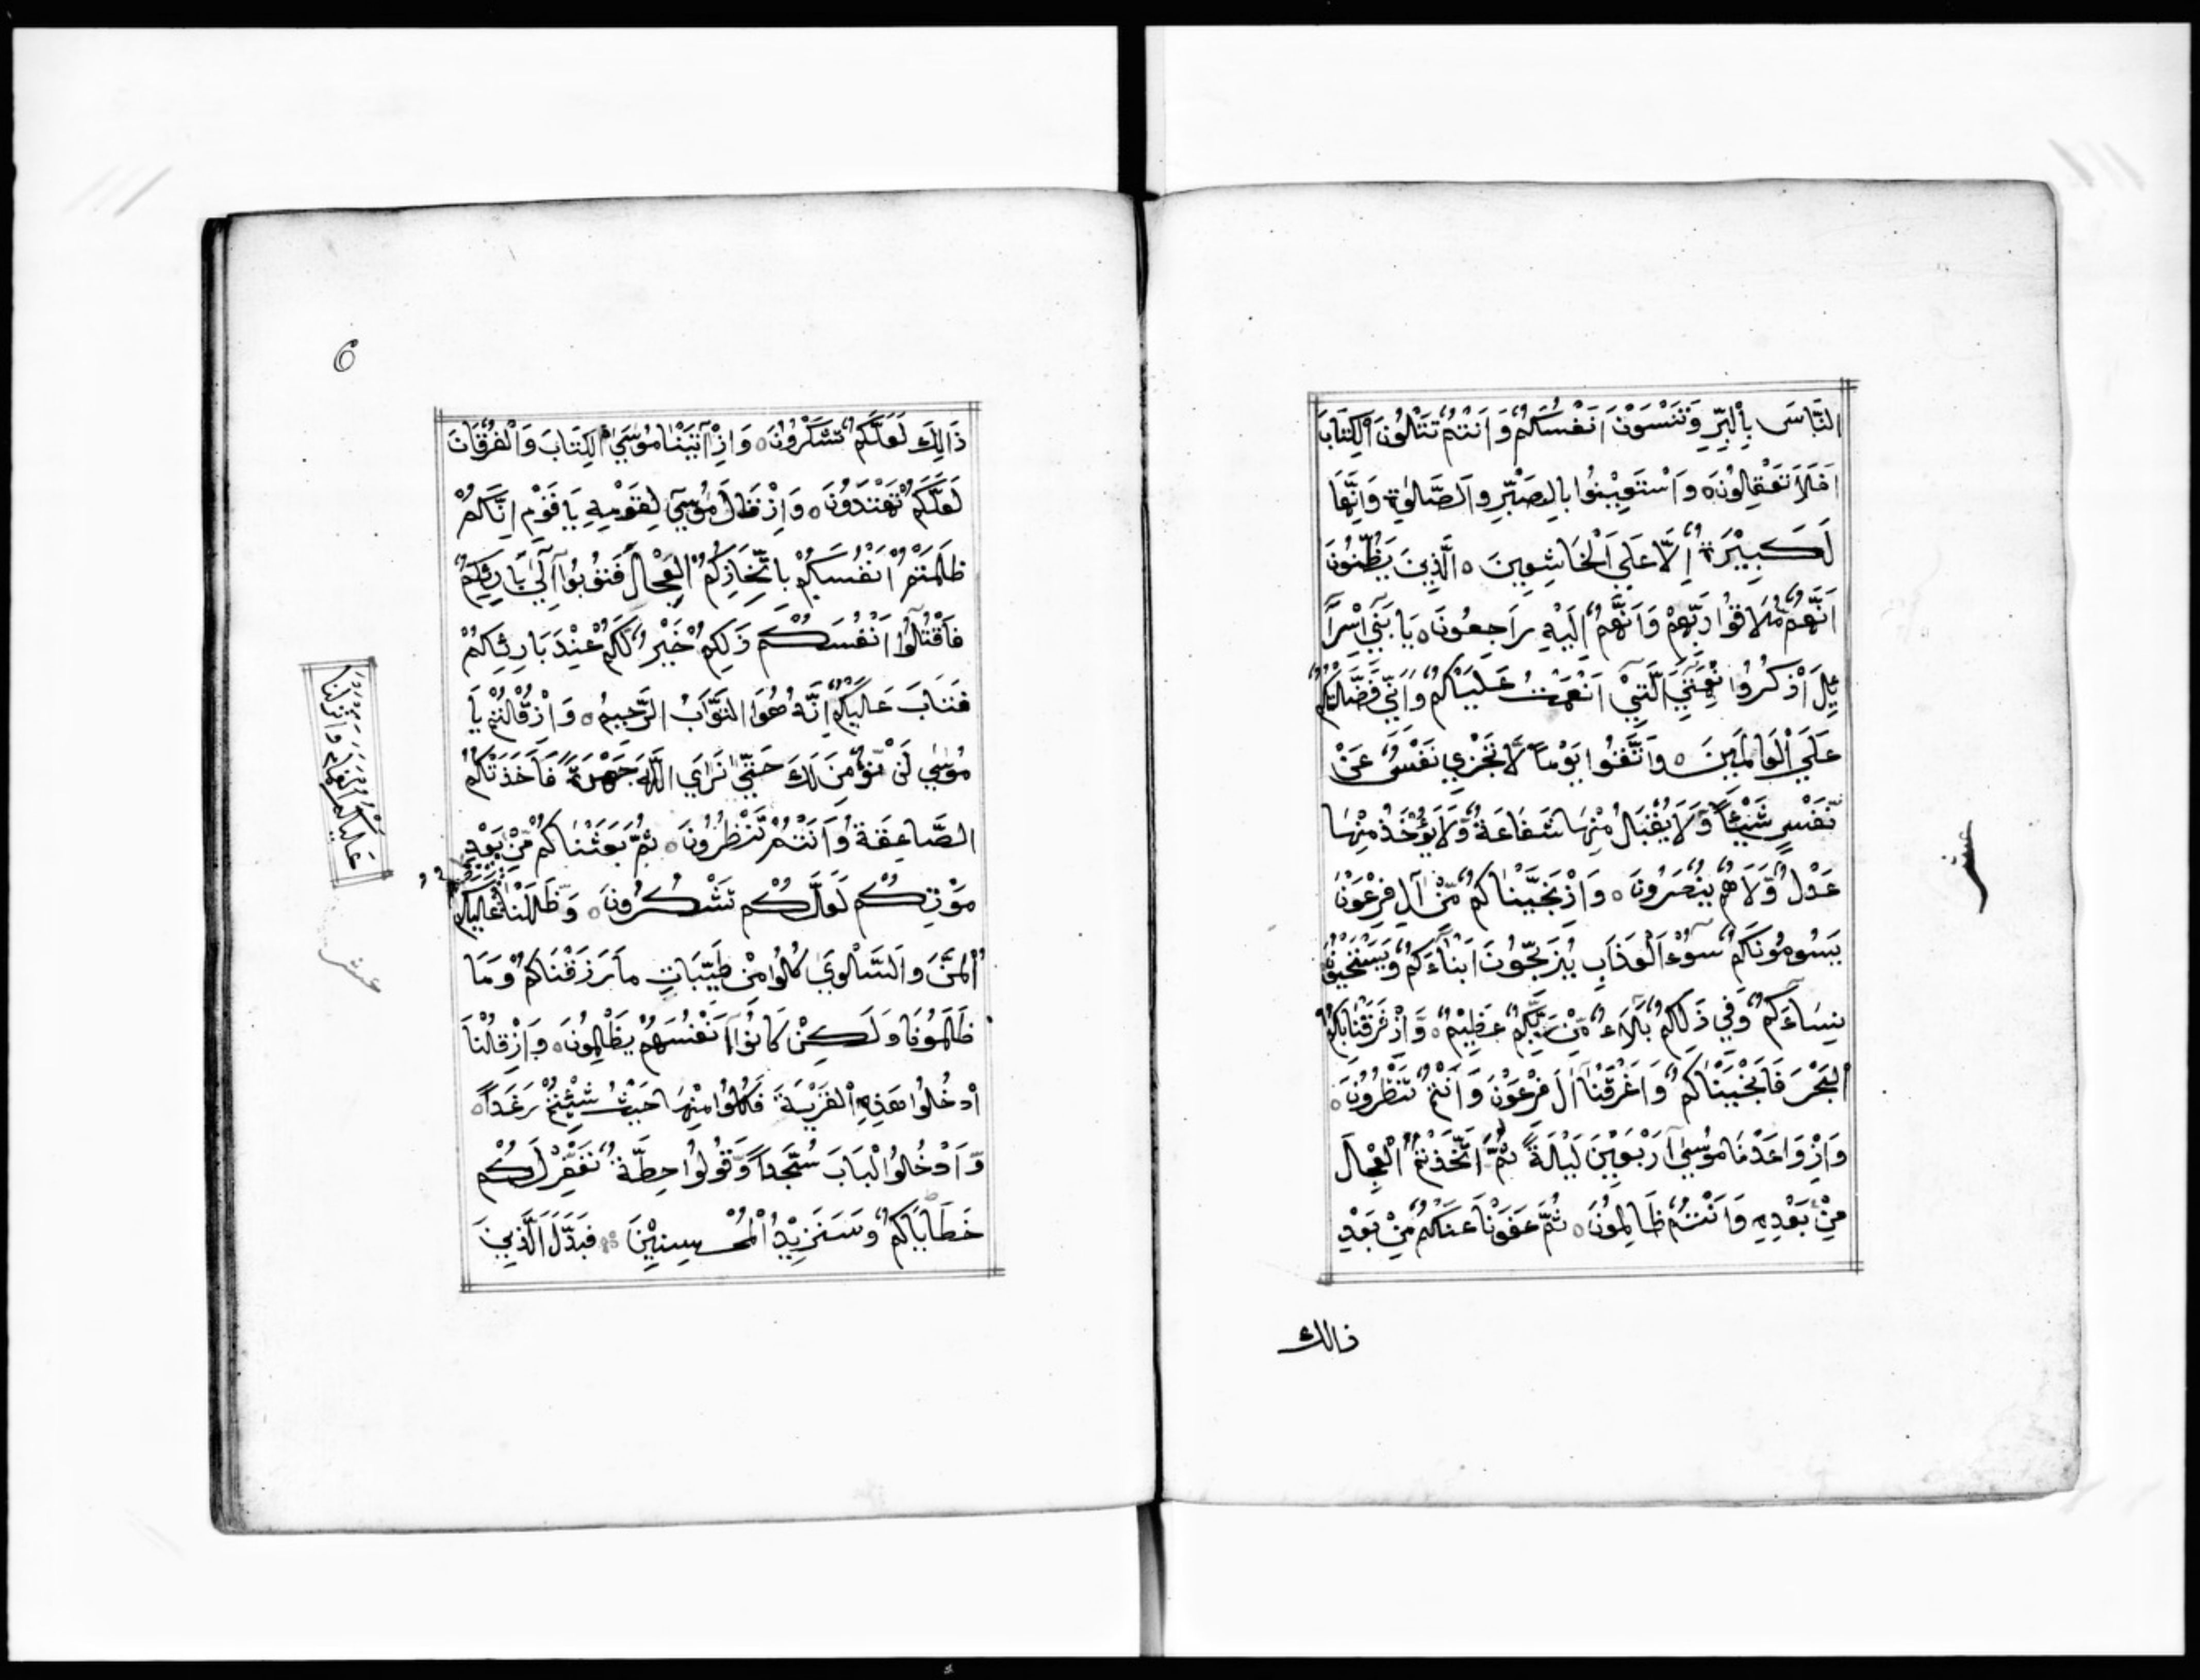 النَّاسَ بِالْبِرِّ وَتَنْسَوْنَ اَنْفُسَكُمْ وَاَنْتُمْ تَتْلُوْنَ الْكِتَابَ
اَفَلَا تَعْقِلُوْنَ ه وَاسْتَعِيْنُوا بِالصَّبْرِ وَالصَّلٰوةِ وَاِنَّهَا
لَكَبِيْرَةٌ اِلَّا عَلَي الْخَاشِعِينَ ه الَّذِينَ يَظُنُّونَ
اَنَّهُمْ مُّلَاقُوْا رَبِّهِمْ وَاَنَّهُمْ اِلَيْهِ رَاجِعُونَ ه يَا بَنِيْ اِسْرَآ
ئِلَ اذْكُرُوا نِعْمَتِيَ الَّتِيْ اَنْعَمْتُ عَلَيْكُمْ وَاَنِّي فَضَّلْتُكُمْ
عَلَي الْعَالَمِينَ ه وَاتَّقُوْا يَوْمًا لَّا تَجْزِي نَفْسٌ عَنْ
نَّفْسٍ شَيْئًا وَّلَا يُقْبَلُ مِنْهَا شَفَاعَةٌ وَّلَا يُؤْخَذُ مِنْهَا
عَدْلٌ وَّلَا هُمْ يُنْصَرُونَ ه وَاِذْ نَجَّيْنٰاكُمْ مِّنْ آلِ فِرْعَوْنَ
يَسُومُونَكُمْ سُوْءَ الْعَذَابِ يُذَبِّحُونَ اَبْنَآءَكُمْ وَيَسْتَحْيُوْنَ
نِسَآءَكُمْ وَفِي ذٰلِكُمْ بَلَآءٌ مِّنْ رَّبِّكُمْ عَظِيْمٌ ه وَاِذْ فَرَقْنَا بِكُمُ
الْبَحْرَ فَاَنْجَيْنَاكُمْ وَاَغْرَقْنَا آلَ فِرْعَوْنَ وَاَنْتُمْ تَنْظُرُوْنَ ه
وَاِذْ وَاعَدْنَا مُوْسٰي اَرْبَعِيْنَ لَيْلَةً ثُمَّ اتَّخَذْتُمُ الْعِجْلَ
مِنْ بَعْدِهِ وَاَنْتُمْ ظَالِمُوْنَ ه ثُمَّ عَفَوْنَا عَنْكُمْ مِّنْ بَعْدِ
ذالك
عشر
6
ذَالِكَ لَعَلَّكُمْ تَشْكُرُوْنَ ه وَاِذْ آتَيْنَا مُوْسَي الْكِتَابَ وَالْفُرْقَانَ
لَعَلَّكُمْ تَهْتَدُوْنَ ه وَاِذْ قَالَ مُوْسٰي لِقَوْمِهِ يَا قَوْمِ اِنَّكُمْ
ظَلَمْتُمْ اَنْفُسَكُمْ بِاتِّخَاذِكُمُ الْعِجْلَ فَتُوْبُوْا اِلٰي بَارِئِكُمْ
فَاقْتُلُوْا اَنْفُسَكُمْ ذٰلِكُمْ خَيْرٌ لَّكُمْ عِنْدَ بَارِئِكُمْ
فَتَابَ عَلَيْكُمْ اِنَّهُ هُوَ التَّوَّابُ الرَّحِيمُ ه وَاِذْ قُلْتُمْ يَا
مُوْسٰي لَنْ نُّؤْمِنَ لَكَ حَتّٰي نَرَي اللّٰهَ جَهْرَةً فَاَخَذَتْكُمُ
الصَّاعِقَةُ وَاَنْتُمْ تَنْظُرُوْنَ ه ثُمَّ بَعَثْنَاكُمْ مِّنْ بَعْدِ
مَوْتِكُمْ لَعَلَّكُمْ تَشْكُرُونَ ه وَظَلَّلْنَا عَلَيْكُمُ
الْمَنَّ وَالسَّلْوٰي كُلُوْا مِنْ طَيِّبَاتِ مَا رَزَقْنَاكُمْ وَمَا
ظَلَمُوْنَا وَلَكِنْ كَانُوْا اَنْفُسَهُمْ يَظْلِمُوْنَ ه وَاِذْ قُلْنَا
ادْخُلُوْا هَذِهِ الْقَرْيَةَ فَكُلُوْا مِنْهَا حَيْثُ شِئْتُمْ رَغَدًا ه
وَّادْخُلُوا الْبَابَ سُجَّدًا وَّقُوْلُوْا حِطَّةٌ نَّغْفِرْ لَكُمْ
خَطَايَاكُمْ وَسَنَزِيْدُ الْمُحْسِنِيْنَ ه فَبَدَّلَ الَّذِيْنَ
عَلَيْكُمُ الْغَمَامَ وَاَنْزَلْنَا
عشر